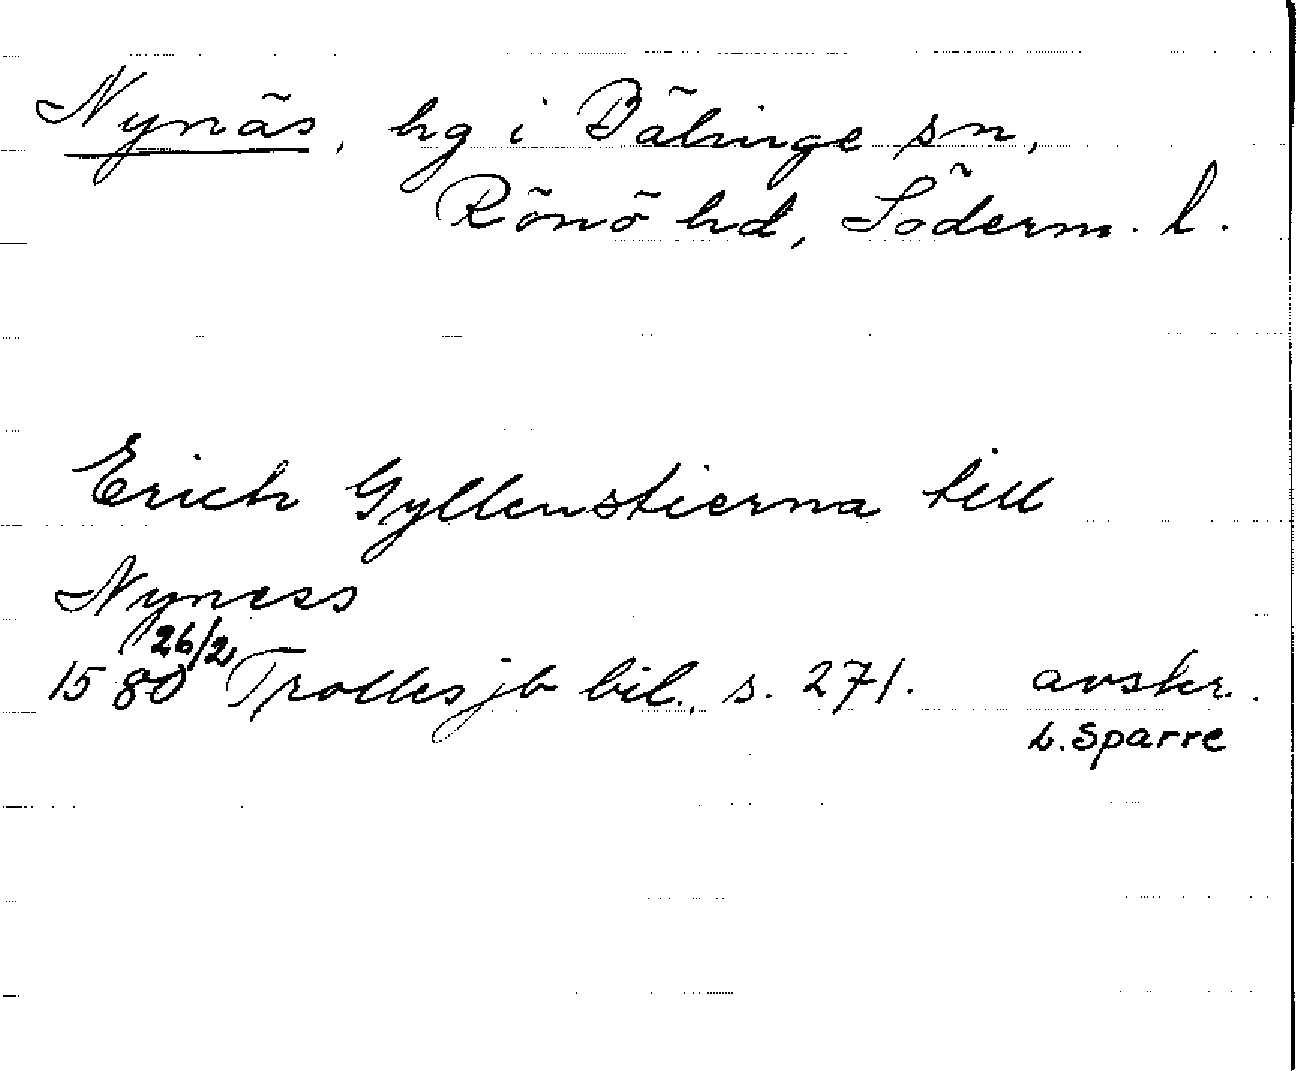 Nynäs, hg i Bälinge sn,
Rönö hd, Söderm. l.
Erich Gyllenstierna till
Nyness
1580 26/2 Trolles jb bil., s. 271. avskr.
L. Sparre